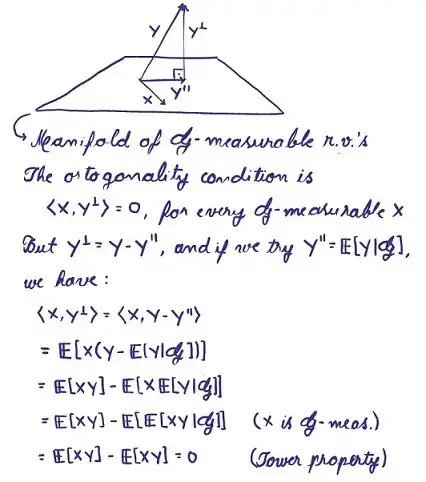 Y Y⊥
X Y"
Manifold of 𝒢-measurable r.v.'s
The ortogonality condition is
⟨X,Y⊥⟩=0, for every 𝒢-measurable X
But Y⊥=Y-Y", and if we try Y"=𝔼[Y|𝒢],
we have:
⟨X,Y⊥⟩=⟨X,Y-Y"⟩
=𝔼[X(Y-𝔼[Y|𝒢])]
=𝔼[XY]-𝔼[X𝔼[Y|𝒢]]
=𝔼[XY]-𝔼[𝔼[XY|𝒢]] (X is 𝒢-meas.)
=𝔼[XY]-𝔼[XY]=0 (Tower property)